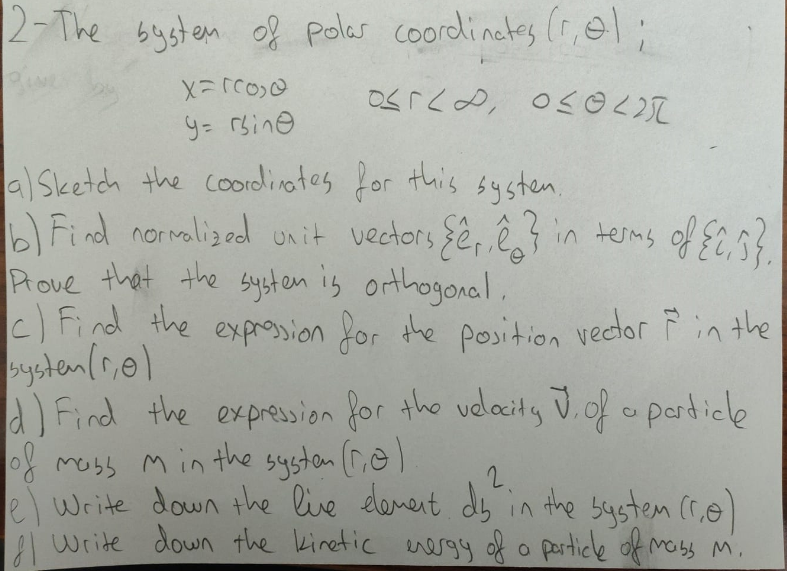 2-The system of polar coordinates (r, θ);
x=rcosθ 0≤r<∞, 0≤θ<2π
y= rsinθ
a) Sketch the coordinates for this system.
b) Find normalized unit vectors {ê_r, ê_θ} in terms of {î, ĵ}.
Prove that the system is orthogonal.
c) Find the expression for the position vector r⃗ in the
system (r, θ)
d) Find the expression for the velocity V⃗, of a particle
of mass m in the system (r, θ)
e) Write down the line element ds² in the system (r, θ)
f) Write down the kinetic energy of a particle of mass m.